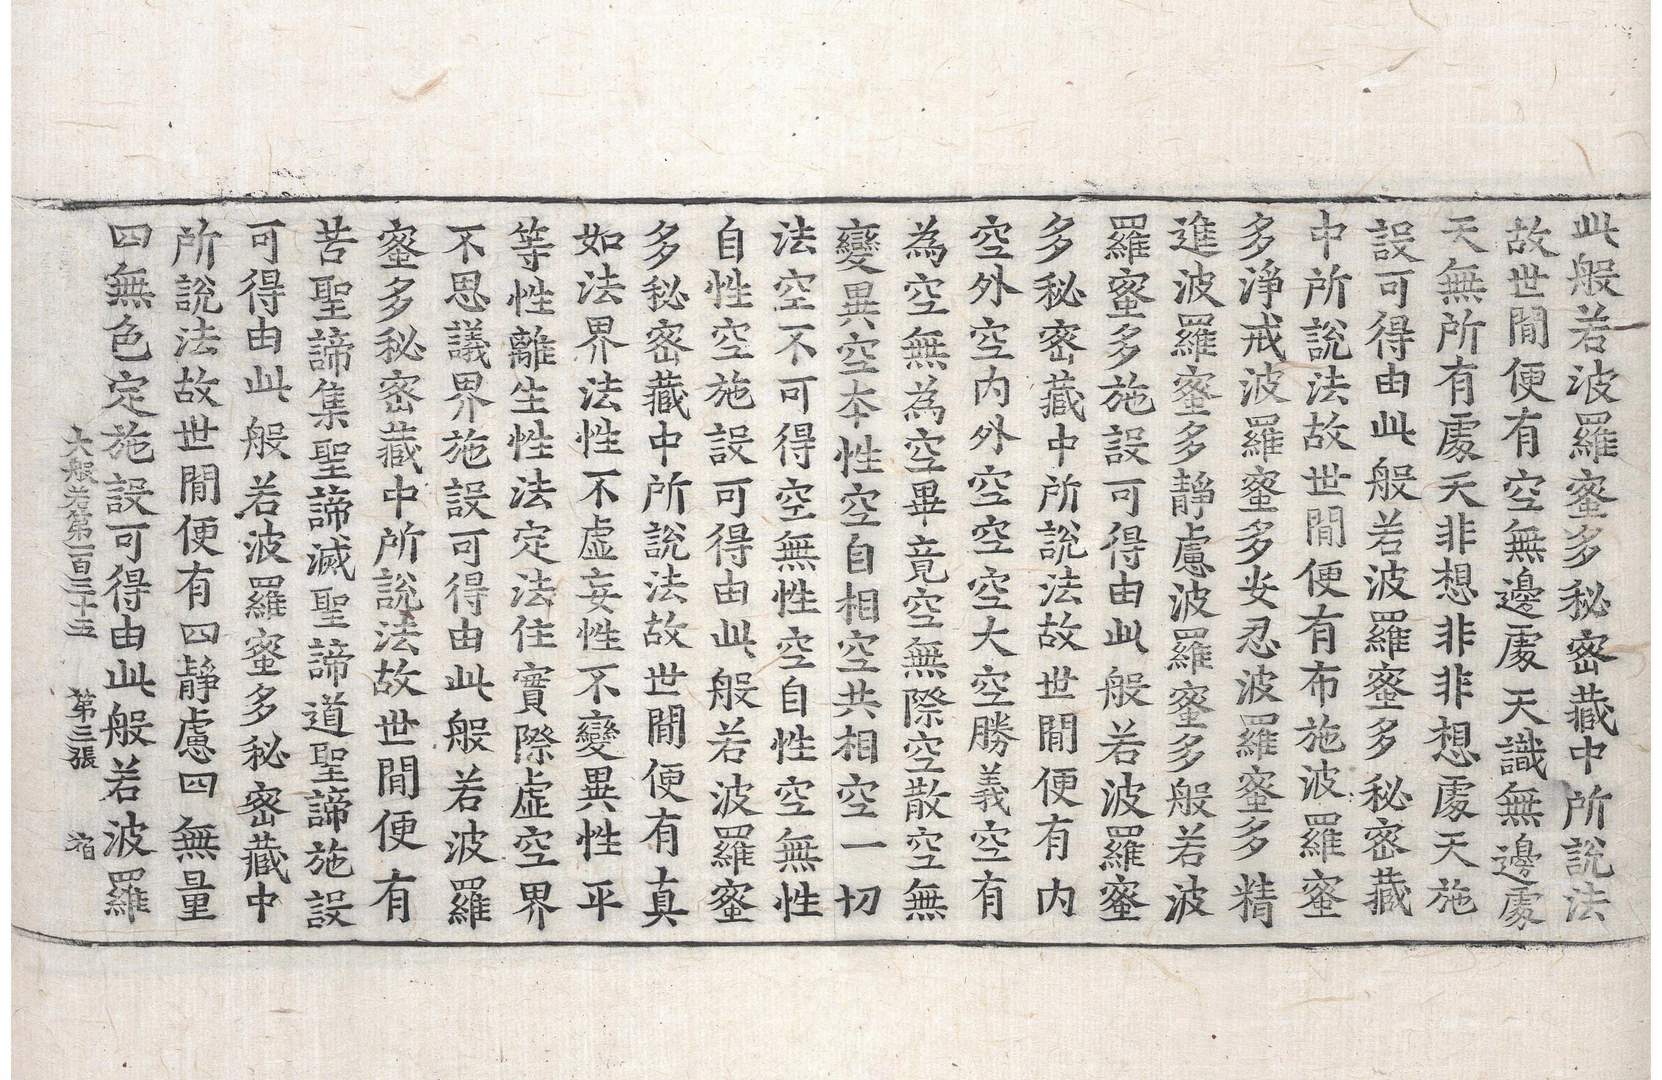 此般若波羅蜜多秘密藏中所說法
故世間便有空無邊處天識無邊處
天無所有處天非想非非想處天施
設可得由此般若波羅蜜多秘密藏
中所說法故世間便有布施波羅蜜
多淨戒波羅蜜多安忍波羅蜜多精
進波羅蜜多靜慮波羅蜜多般若波
羅蜜多施設可得由此般若波羅蜜
多秘密藏中所說法故世間便有內
空外空內外空空空大空勝義空有
為空無為空畢竟空無際空散空無
變異空本性空自相空共相空一切
法空不可得空無性空自性空無性
自性空施設可得由此般若波羅蜜
多秘密藏中所說法故世間便有真
如法界法性不虛妄性不變異性平
等性離生性法定法住實際虛空界
不思議界施設可得由此般若波羅
蜜多秘密藏中所說法故世間便有
苦聖諦集聖諦滅聖諦道聖諦施設
可得由此般若波羅蜜多秘密藏中
所說法故世間便有四靜慮四無量
四無色定施設可得由此般若波羅
大般若第一百三十五 第三張 宿